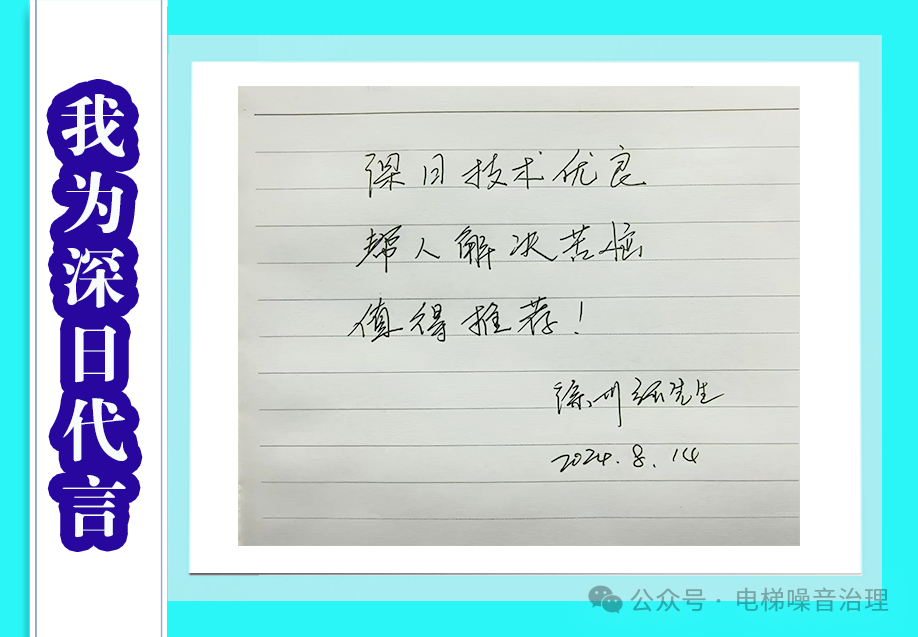 我为深日代言
深日技术优良
帮人解决苦恼
值得推荐！
徐州 先生
2024.8.14
公众号·电梯噪音治理